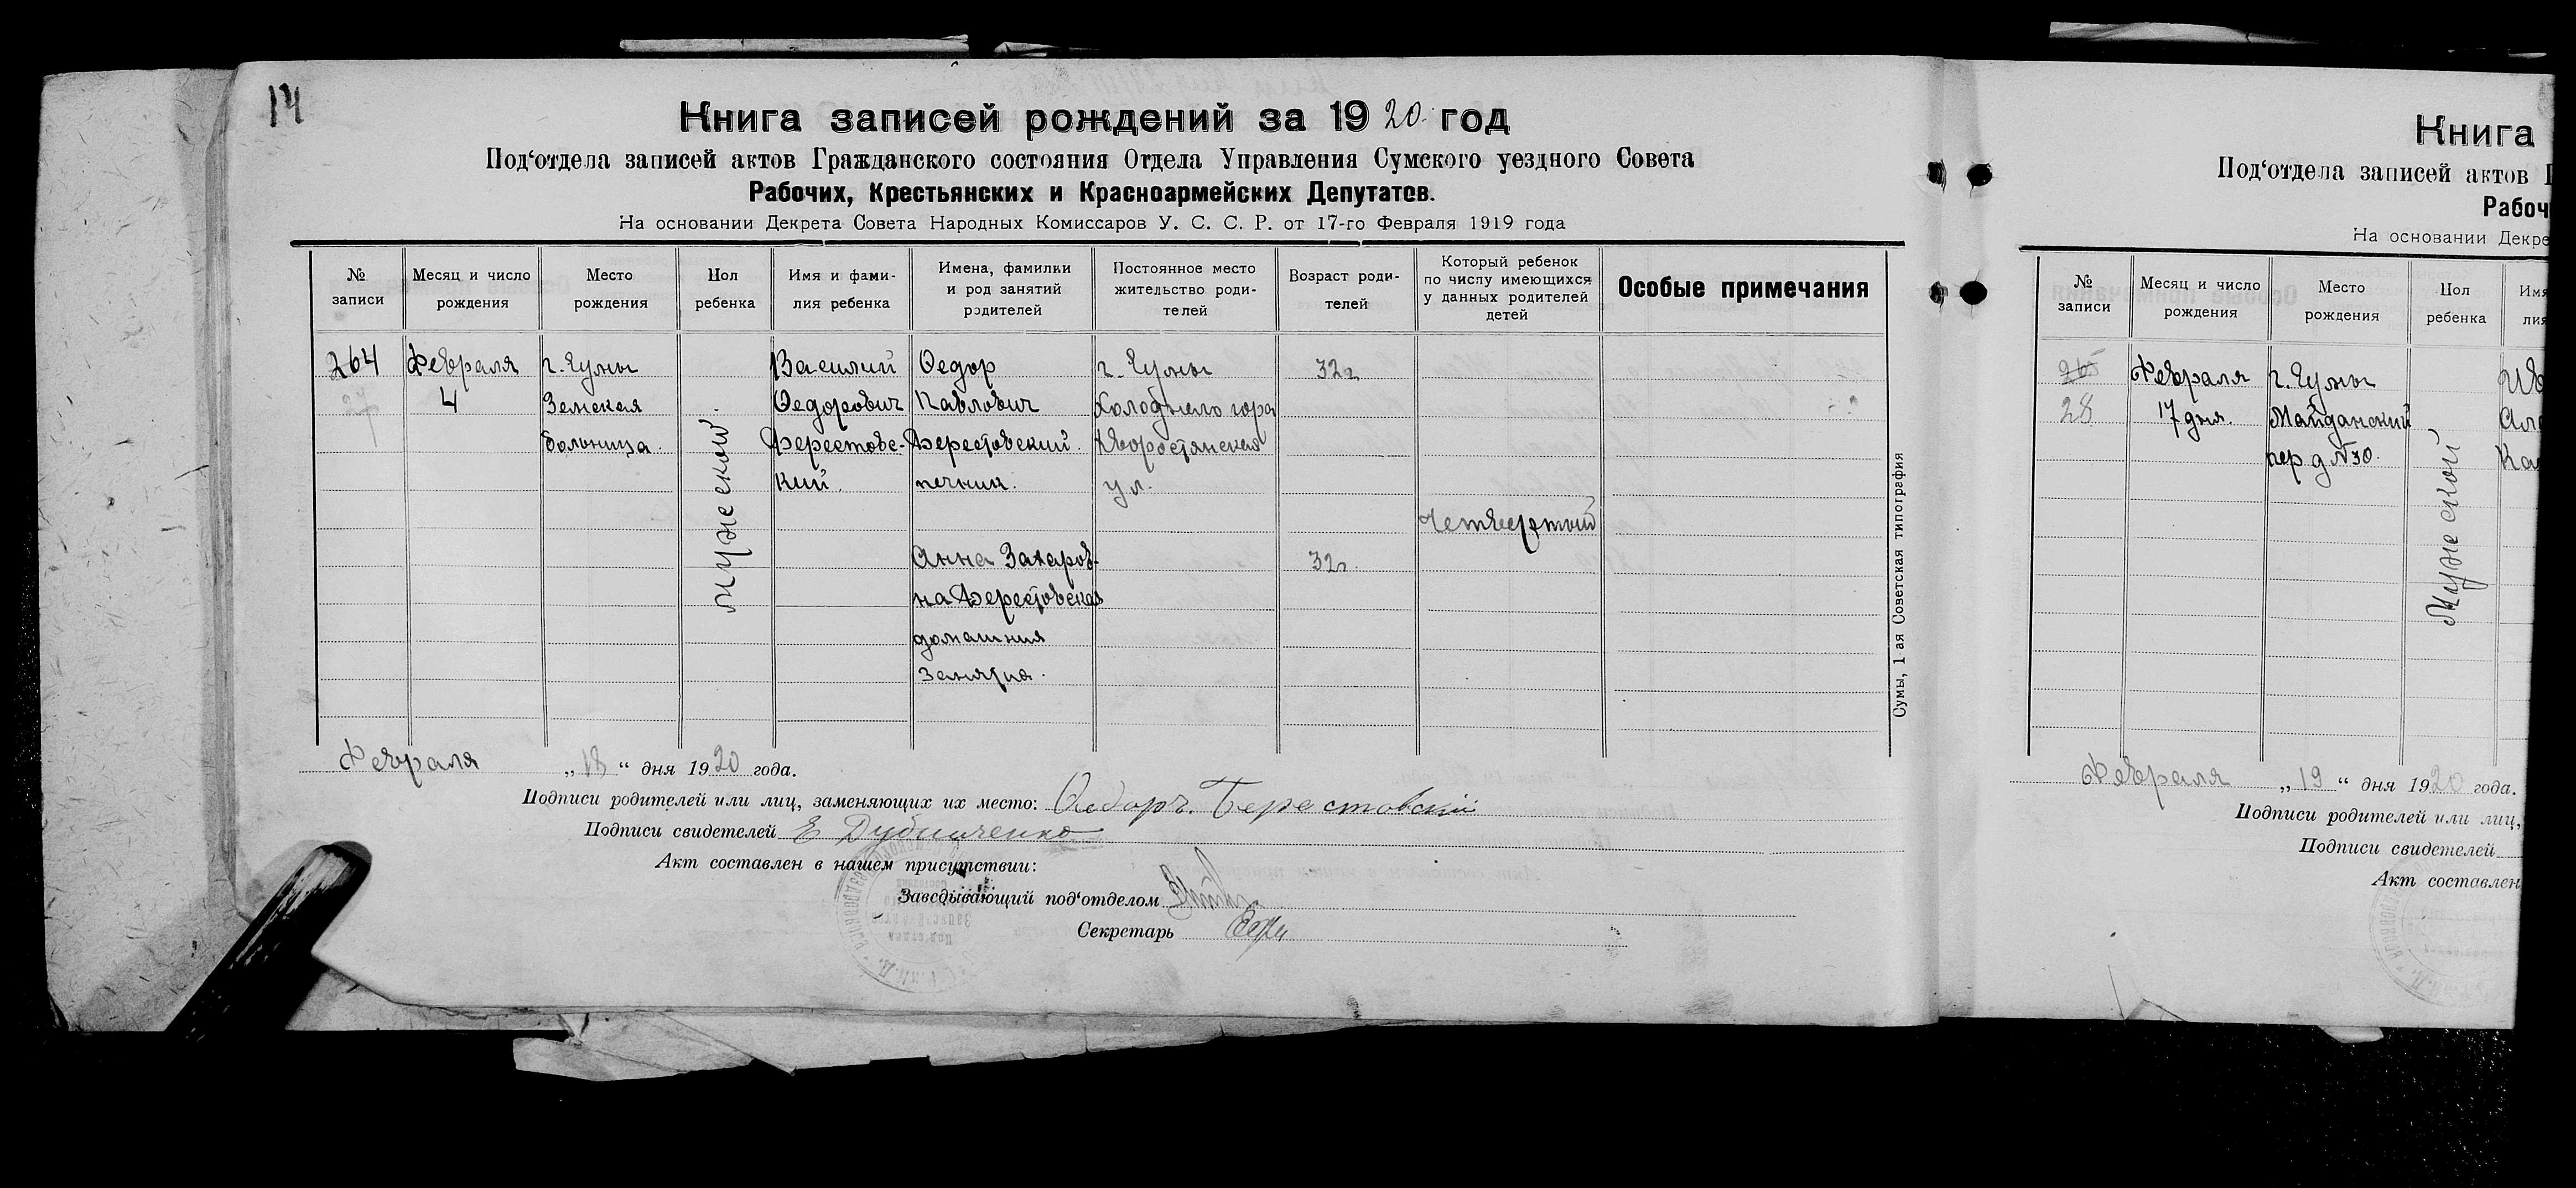 14
Книга записей рождений за 1920 год
Под‘отдела записей актов Гражданского состояния Отдела Управления Сумского уездного Совета
Рабочих, Крестьянских и Красноармейских Депутатов.
На основании Декрета Совета Народных Комиссаров У. С. С. Р. от 17-го Февраля 1919 года
№ записи
Месяц и число рождения
Место рождения
Пол ребенка
Имя и фами-
лия ребенка
Имена, фамилии
и род занятий
родителей
Постоянное место
жительство роди-
телей
Возраст роди-
телей
Который ребенок
по числу имеющихся
у данных родителей
детей
Особые примечания
264
27
Февраля
4
г. Сумы
Земская
больница.
мужской
Василий
Федорович
Берестовс-
кий.
Федор
Павлович
Берестовский.
печник.
Анна Захаров-
на Берестовская
домашния
занятия.
г. Сумы
ул.
32 г.
32 г.
Четвертый
Сумы, 1-ая Советская типография
Февраля „18“ дня 1920 года.
Подписи родителей или лиц, заменяющих их место: Федоръ Берестовскій
Подписи свидетелей
Акт составлен в нашем присутствии:
Заведывающий под‘отделом
Секретарь
Книга
Под‘отдела записей актов
Рабоч
На основании Декре
№ записи
Месяц и число рождения
Место рождения
Пол ребенка
Имя
лия
265
28
Февраля
17 дня.
г. Сумы
Майданский
пер. д. №30.
Мужской
Февраля „19“ дня 1920 года.
Подписи родителей или лиц,
Подписи свидетелей
Акт составлен